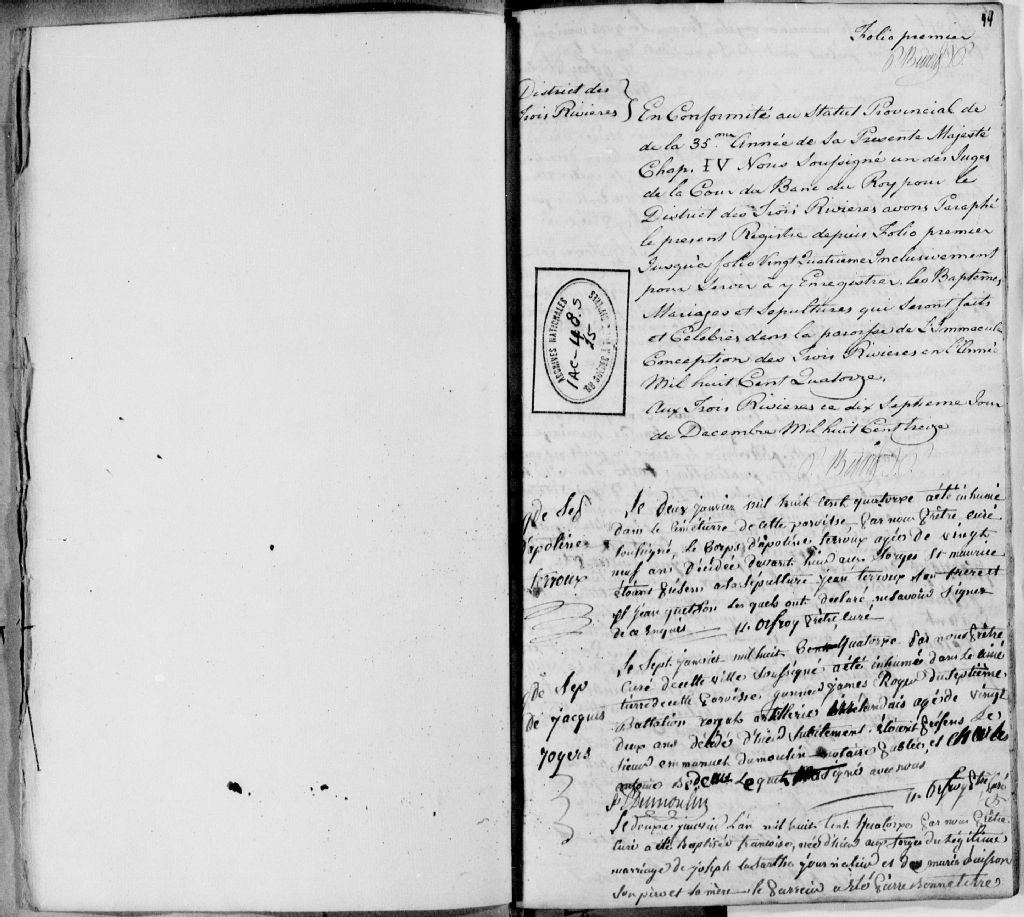 44
Folio premier
P Bedard
District des
Trois Rivieres
En Conformité au Statut Provincial de
de la 35.me Année de Sa Presente Majesté
Chap. IV Nous Soussigné un des Juges
de la Cour du Banc du Roy pour le
District des Trois Rivieres avons Paraphé
le present Registre depuis Folio premier
Jusqu'a folio Vingt Quatrieme Inclusivement
pour Servir a y Enregistrer les Baptêmes,
Mariages et Sepultures qui Seront faits
et Celebrés dans la paroisse de L'Immaculée
Conception des Trois Rivieres en l'Année
Mil huit Cent Quatorze.
Aux Trois Rivieres ce dix Septieme Jour
de Decembre Mil huit Cent treize
P Bedard
ARCHIVES NATIONALES
1AC-48.5
25
Sep
d'apoline
terroux
Le Deux janvier mil huit cent quatorze a été inhumé
dans le cimetierre de cette paroisse par nous prêtre curé
soussigné, Le Corps d'apoline terroux agée de vingt
neuf ans décédée devant hier aux forges St maurice
étoient présens a la sépulture jean terroux son frère et
et jean Les quels ont déclaré ne savoir signer
de ce enquis — prêtre, curé
Sep
de jacques
rogers
Le Sept janvier mil huit Cent quatorze par nous prêtre
curé de cette ville soussigné a été inhumé dans le cime
tierre de cette paroisse james Roger du septième
Battalion royal artillerie irlandais agé de vingt
deux ans décédé d'hier subitement. étoient présens Le
sieur emmanuel dumoulin notaire public, et charles
antoine signés avec nous
Dumoulin
curé
Le douze janvier l'an mil huit cent quatorze par nous prêtre
curé a été Baptisée francoise, née d'hier aux forges du légitime
marriage de joseph journalier et de marie buisson
son père et la mère — le parrein a été pierre Bonne